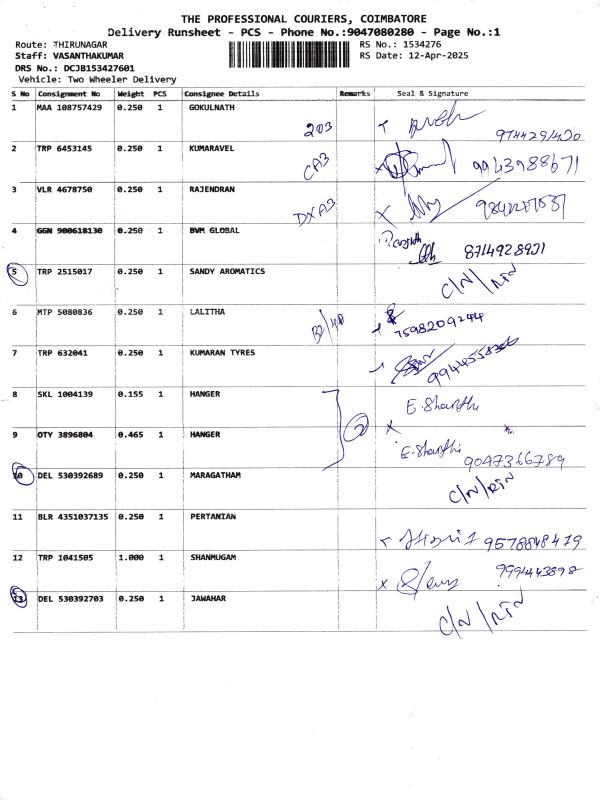 THE PROFESSIONAL COURIERS, COIMBATORE
Delivery Runsheet - PCS - Phone No.:9047080280 - Page No.:1
Route: THIRUNAGAR RS No.: 1534276
Staff: VASANTHAKUMAR RS Date: 12-Apr-2025
DRS No.: DCJB153427601
Vehicle: Two Wheeler Delivery
S No Consignment No Weight PCS Consignee Details Remarks Seal & Signature
1 MAA 108757429 0.250 1 GOKULNATH
203
2 TRP 6453145 0.250 1 KUMARAVEL
CA3 9943988671
3 VLR 4678750 0.250 1 RAJENDRAN
DXA3
4 GGN 900618130 0.250 1 BVM GLOBAL
8714928921
5 TRP 2515017 0.250 1 SANDY AROMATICS
C/N/RTN
6 MTP 5080836 0.250 1 LALITHA
7598209244
7 TRP 632041 0.250 1 KUMARAN TYRES
8 SKL 1004139 0.155 1 HANGER
E. Shanthi
2
9 OTY 3896804 0.465 1 HANGER
E. Shanthi 9047366789
10 DEL 530392689 0.250 1 MARAGATHAM
C/N/RTN
11 BLR 4351037135 0.250 1 PERTANIAN
9578848479
12 TRP 1041505 1.000 1 SHANMUGAM
9994443898
13 DEL 530392703 0.250 1 JAWAHAR
C/N/RTN